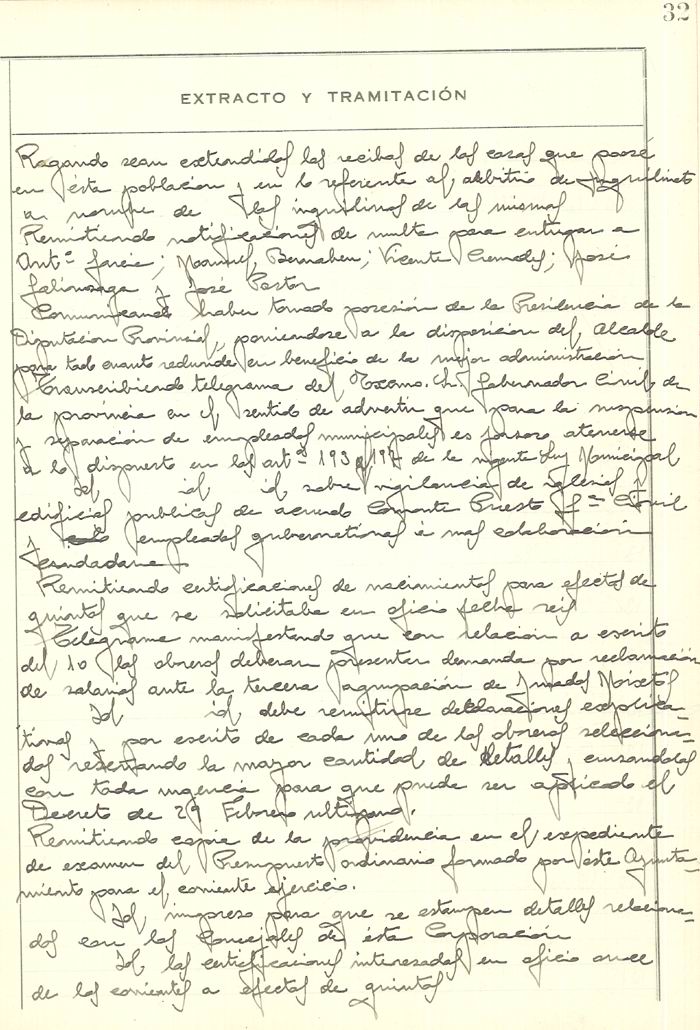 32
EXTRACTO Y TRAMITACIÓN
Rogando sean extendidos los recibos de las casas que posee
en ésta población y en lo referente al arbitrio de inquilinato
a nombre de los inquilinos de las mismas
Remitiendo notificaciones de multa para entregar a
Antº Garcia; Manuel Bernabeu; Vicente Cremades; José
y José Pastor
Comunicando haber tomado posesión de la Presidencia de la
Diputación Provincial, poniendose a la disposición del Alcalde
para todo cuanto redunde en beneficio de la mejor administración
Transcribiendo telegrama del Excmo. Gobernador Civil de
la provincia en el sentido de advertir que para la suspensión
y separación de empleados municipales es forzoso atenerse
a lo dispuesto en los artº 193 y 197 de la vigente Ley Municipal
Id id id sobre vigilancia de iglesias y
edificios publicos de acuerdo Comante Puesto Gª Civil
y empleados gubernativos é mas colaboración
ciudadana
Remitiendo certificaciones de nacimientos para efectos de
quintas que se solicitaba en oficio fecha seis
Telegrama manifestando que con relación a escrito
del 10 los obreros deberan presentar demanda por reclamación
de salarios ante la tercera agrupación de Jurados Mixtos
Id id debe remitirse declaraciones explica-
tivas y por escrito de cada uno de los obreros selecciona-
dos reseñando la mayor cantidad de detalles, cursandolas
con toda urgencia para que puede ser aplicado el
Decreto de 29 Febrero ultimo.
Remitiendo copia de la providencia en el expediente
de examen del Presupuesto ordinario formado por éste Ayunta-
miento para el corriente ejercicio.
Id impreso para que se estampen detalles relaciona-
dos con los Concejales de ésta Corporación
Id las certificaciones interesadas en oficio once
de los corrientes a efectos de quintas